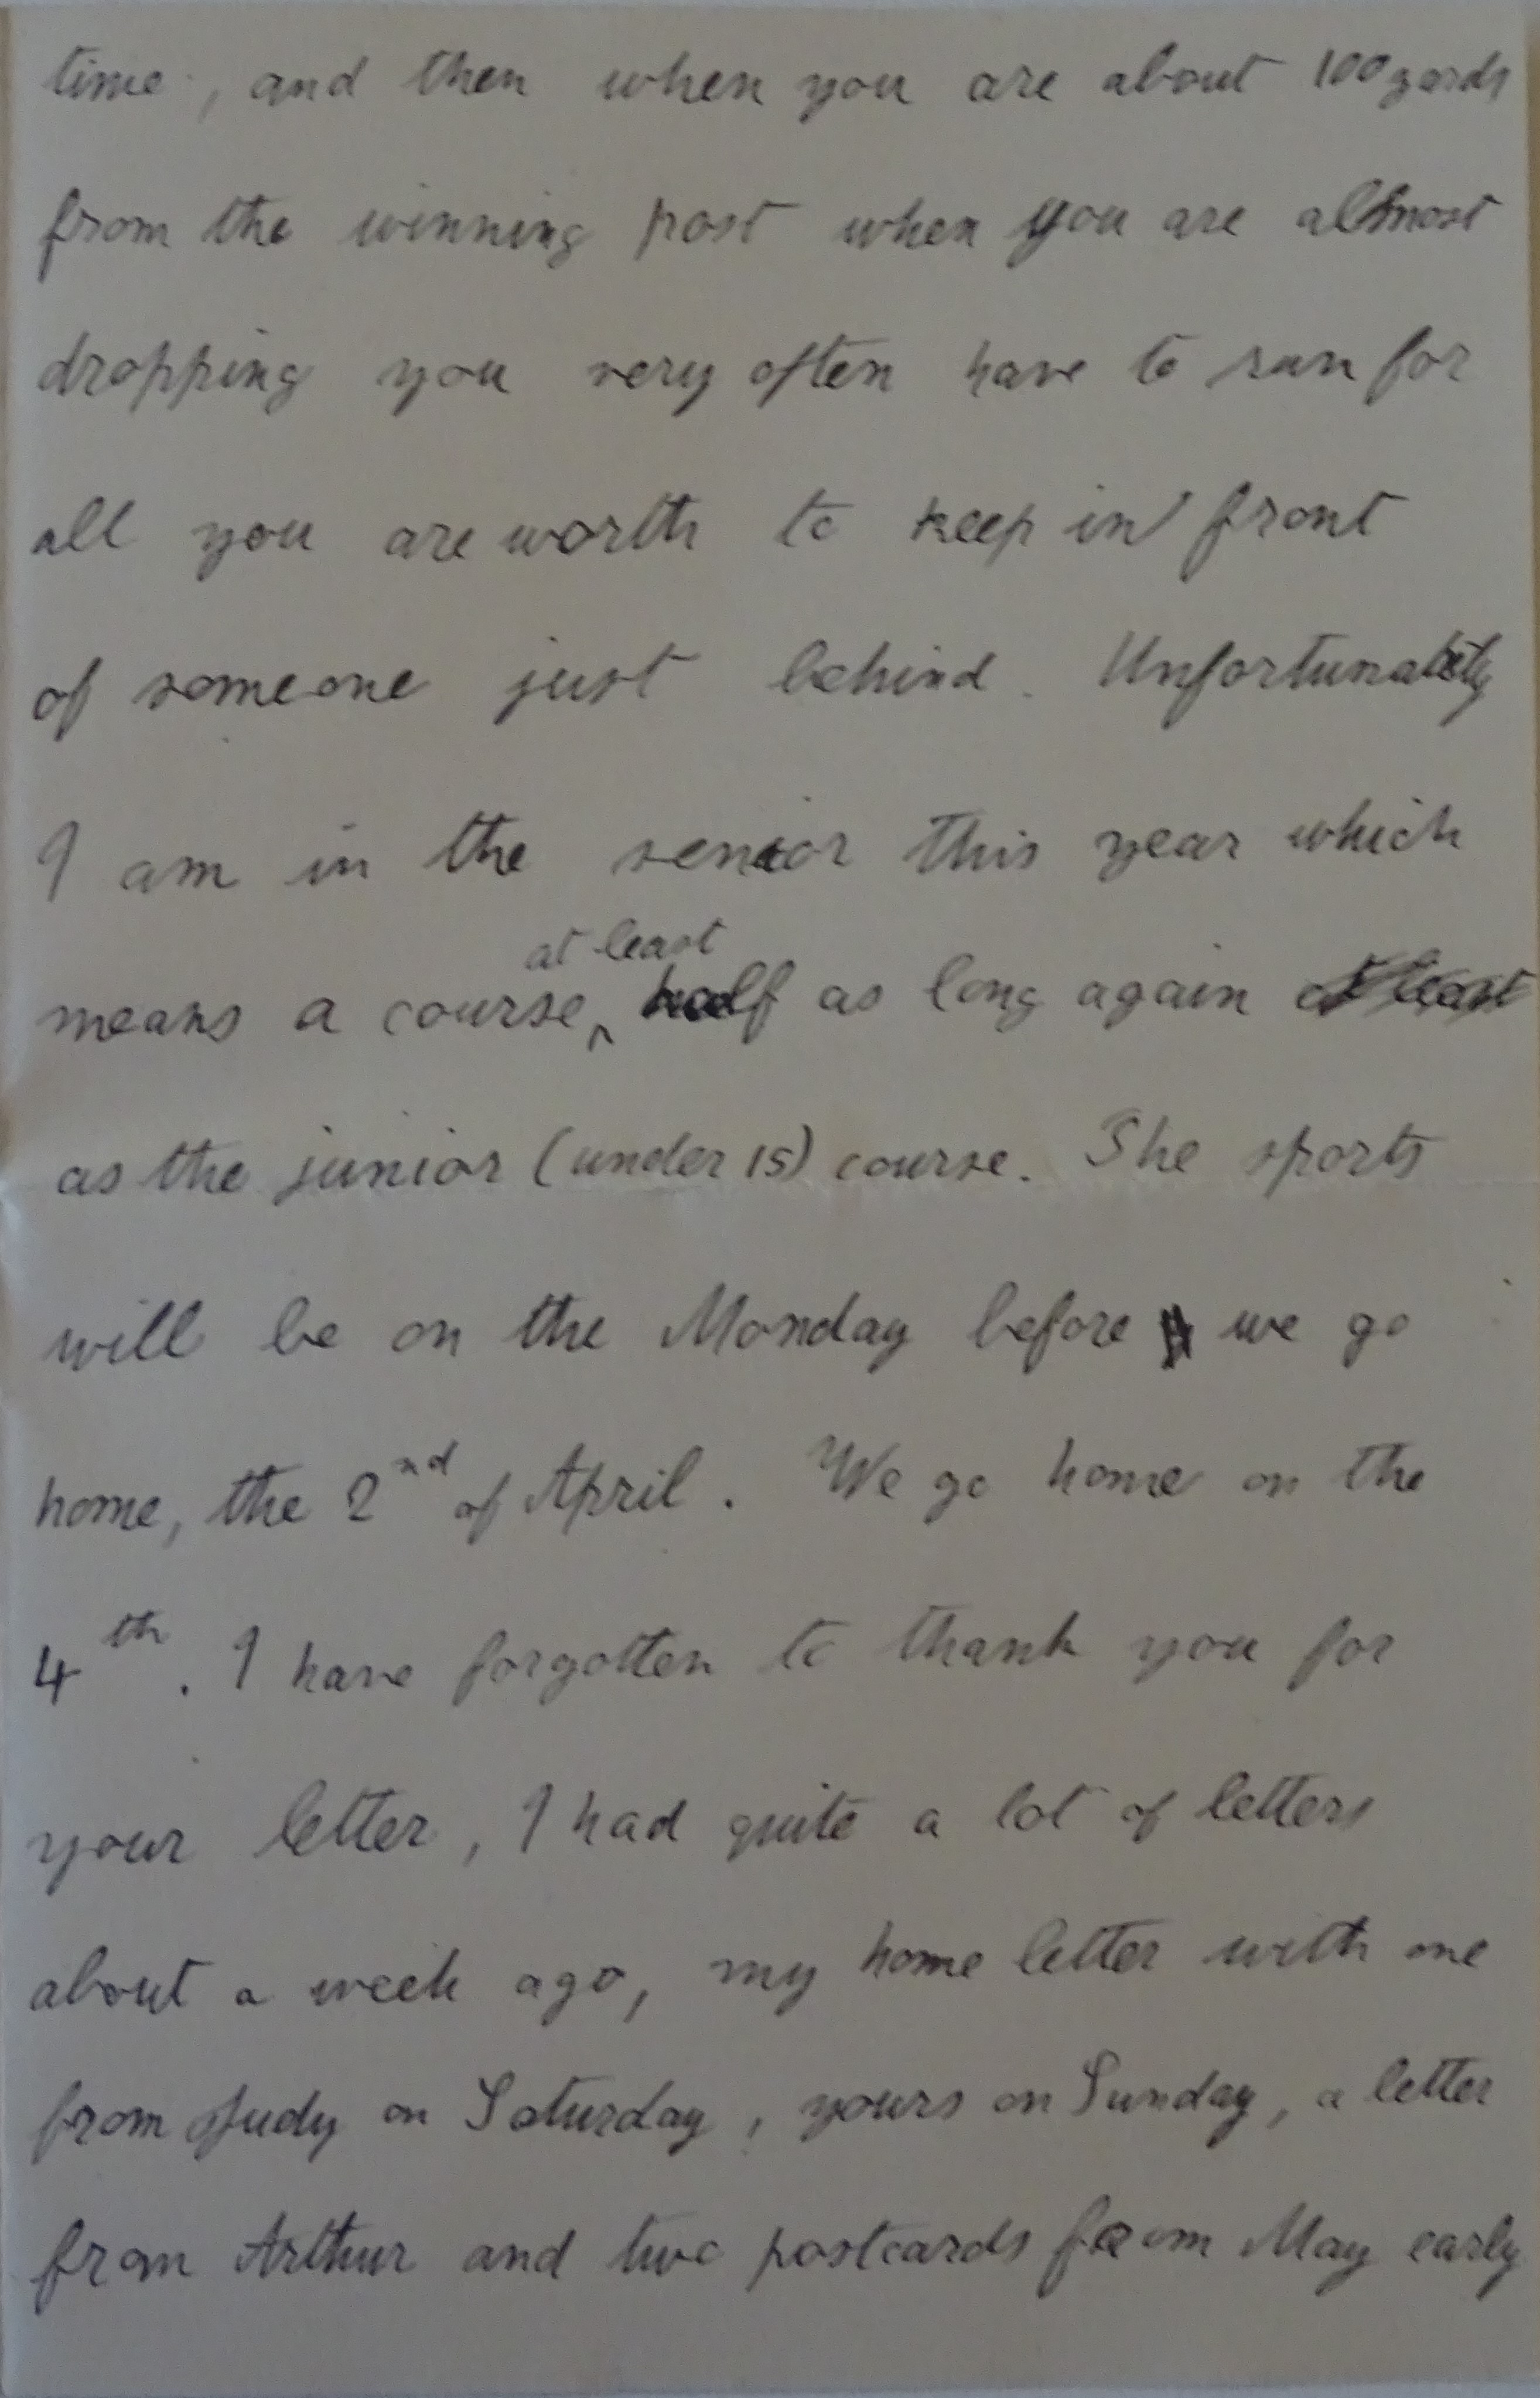 time, and then when you are about 100 yards
from the winning post when you are almost
dropping you very often have to run for
all you are worth to keep in front
of someone just behind. Unfortunately
I am in the senior this year which
at least
means a course ‸ half as long again at least
as the junior (under 15) course. The sports
will be on the Monday before we go
home, the 2nd of April. We go home on the
4th. I have forgotten to thank you for
your letter, I had quite a lot of letters
about a week ago, my home letter with one
from Judy on Saturday, yours on Sunday, a letter
from Arthur and two postcards from May early